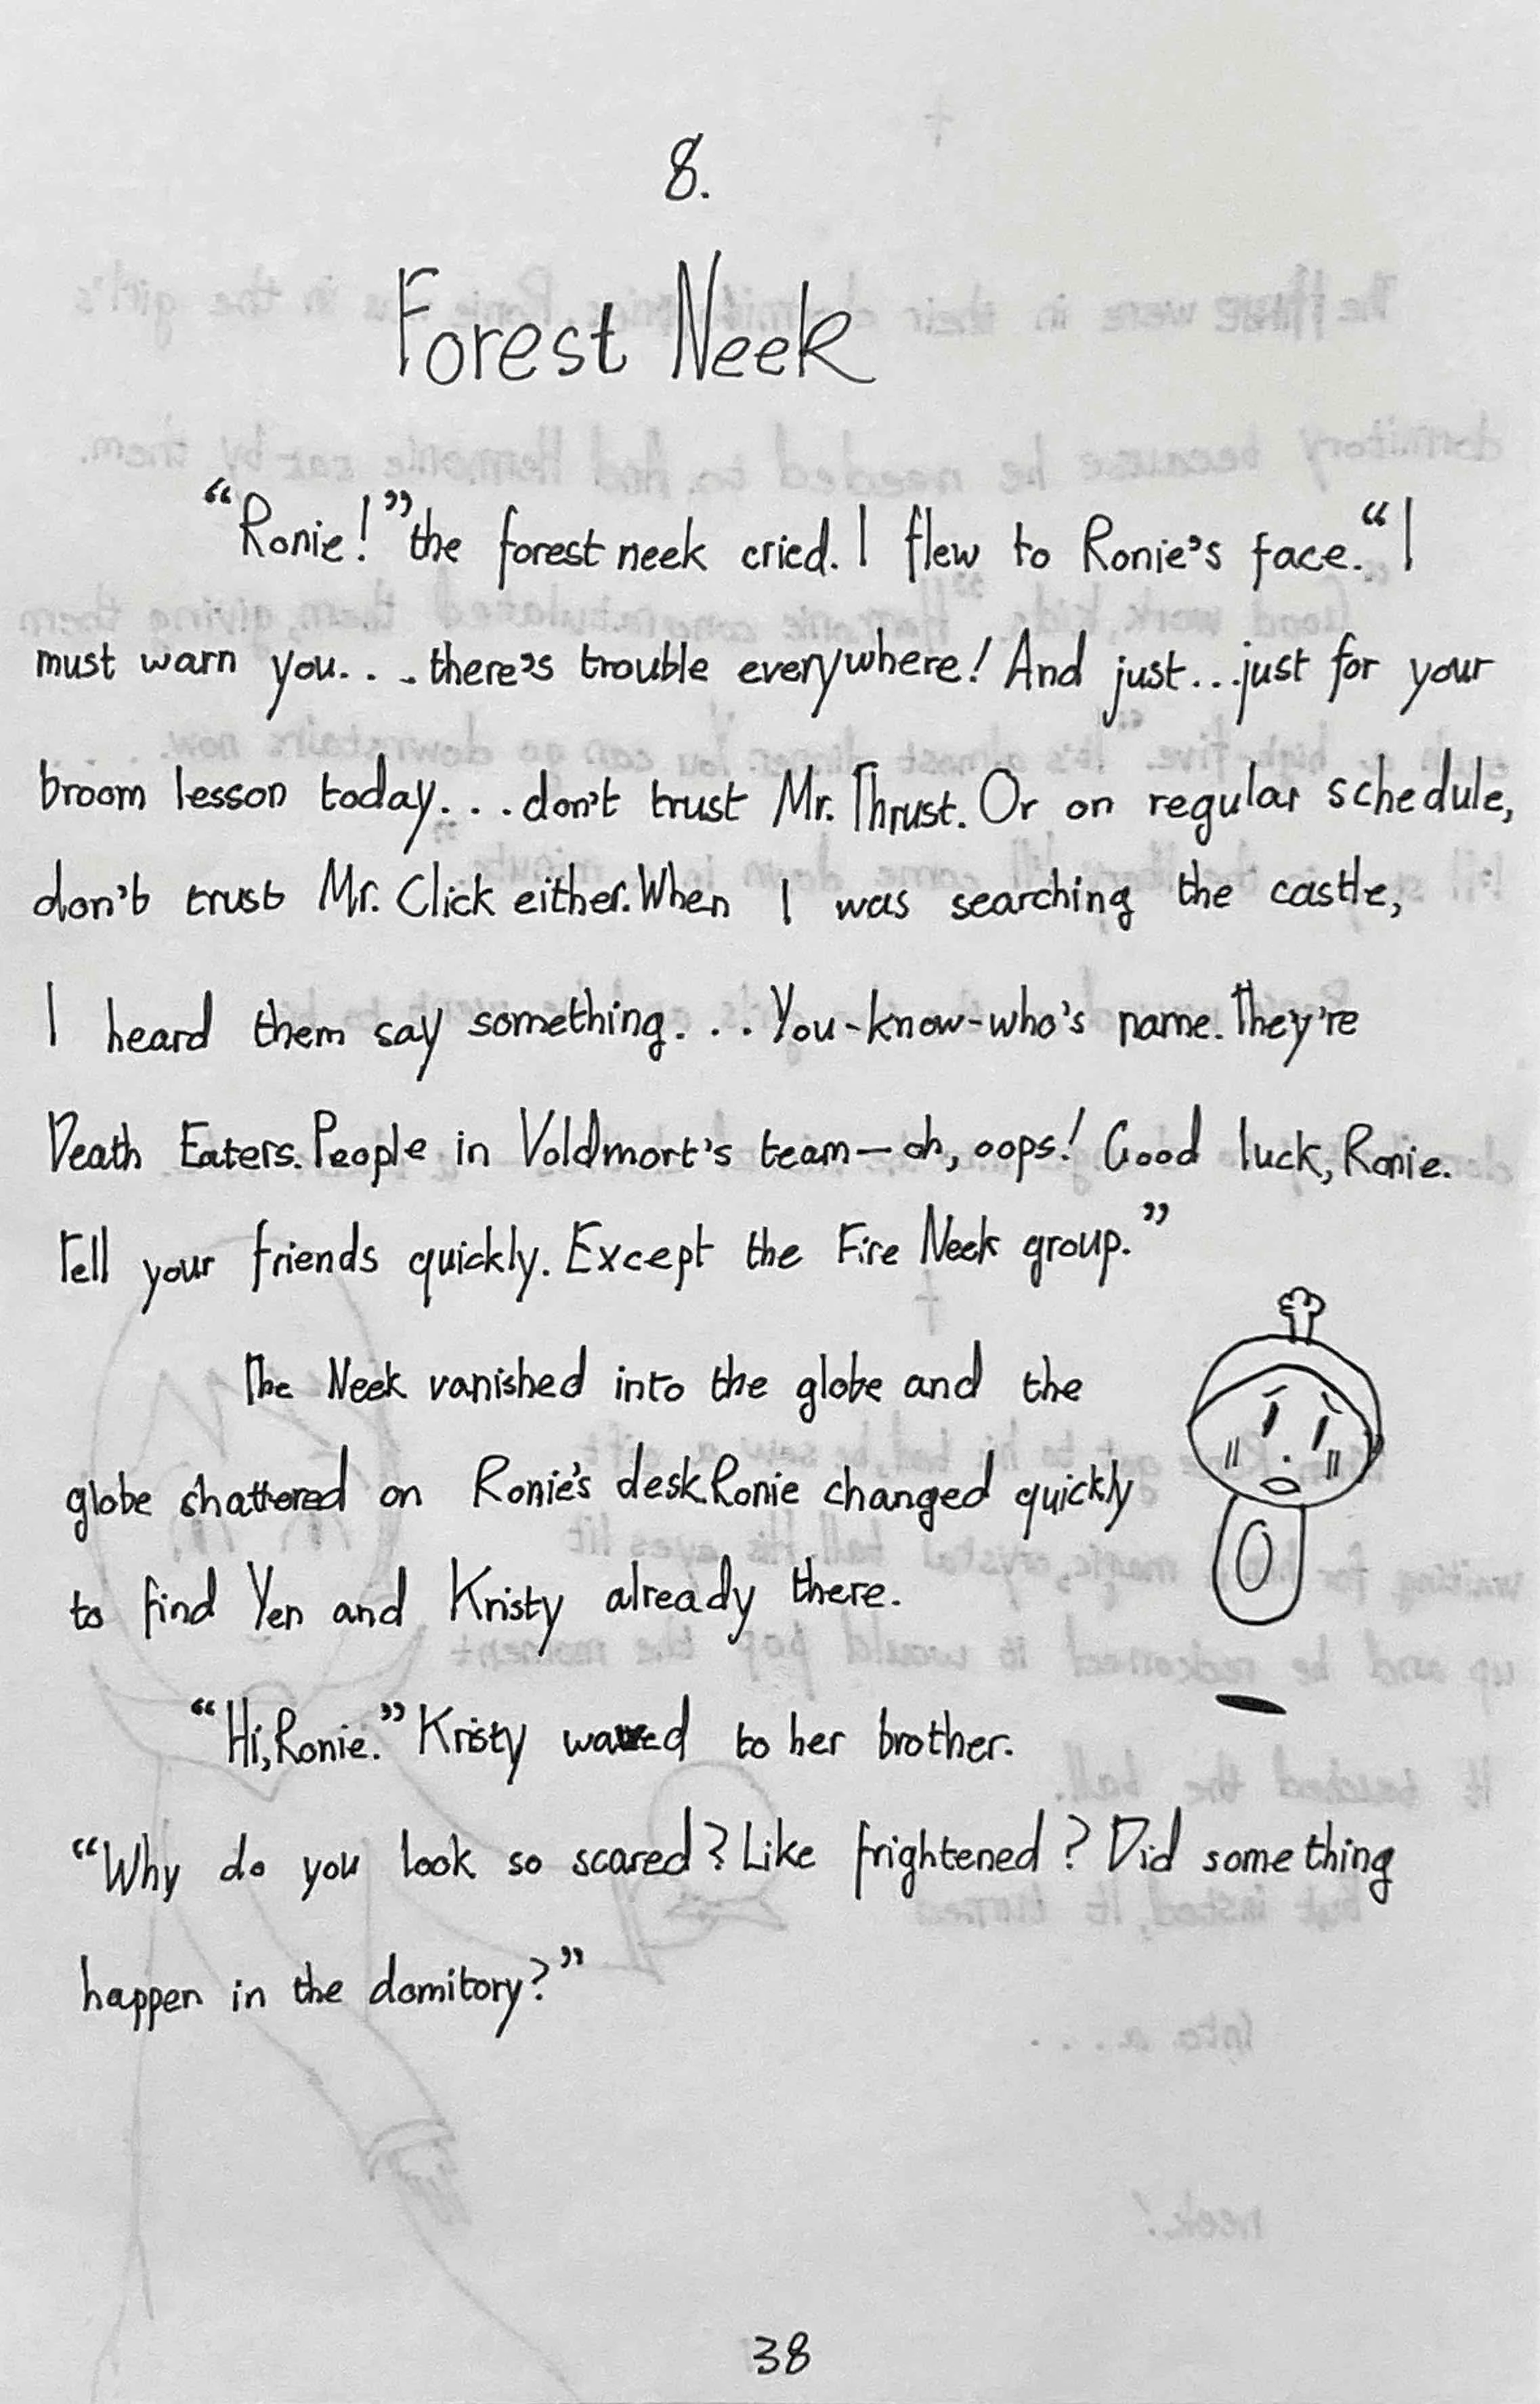 8.
Forest Neek
“Ronie!” the forest neek cried. I flew to Ronie's face. “I
must warn you... there's trouble everywhere! And just... just for your
broom lesson today... don't trust Mr. Thrust. Or on regular schedule,
don't trust Mr. Click either. When I was searching the castle,
I heard them say something... You-know-who's name. They're
Death Eaters. People in Voldmort's team — oh, oops! Good luck, Ronie.
Tell your friends quickly. Except the Fire Neek group.”
The Neek vanished into the globe and the
globe shattered on Ronie's desk. Ronie changed quickly
to find Yen and Kristy already there.
“Hi, Ronie.” Kristy waved to her brother.
“Why do you look so scared? Like frightened? Did something
happen in the domitory?”
38